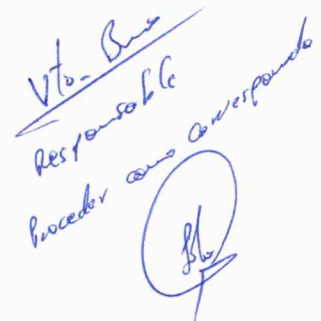 Vto. Bno
Responsable
Proceder como corresponda